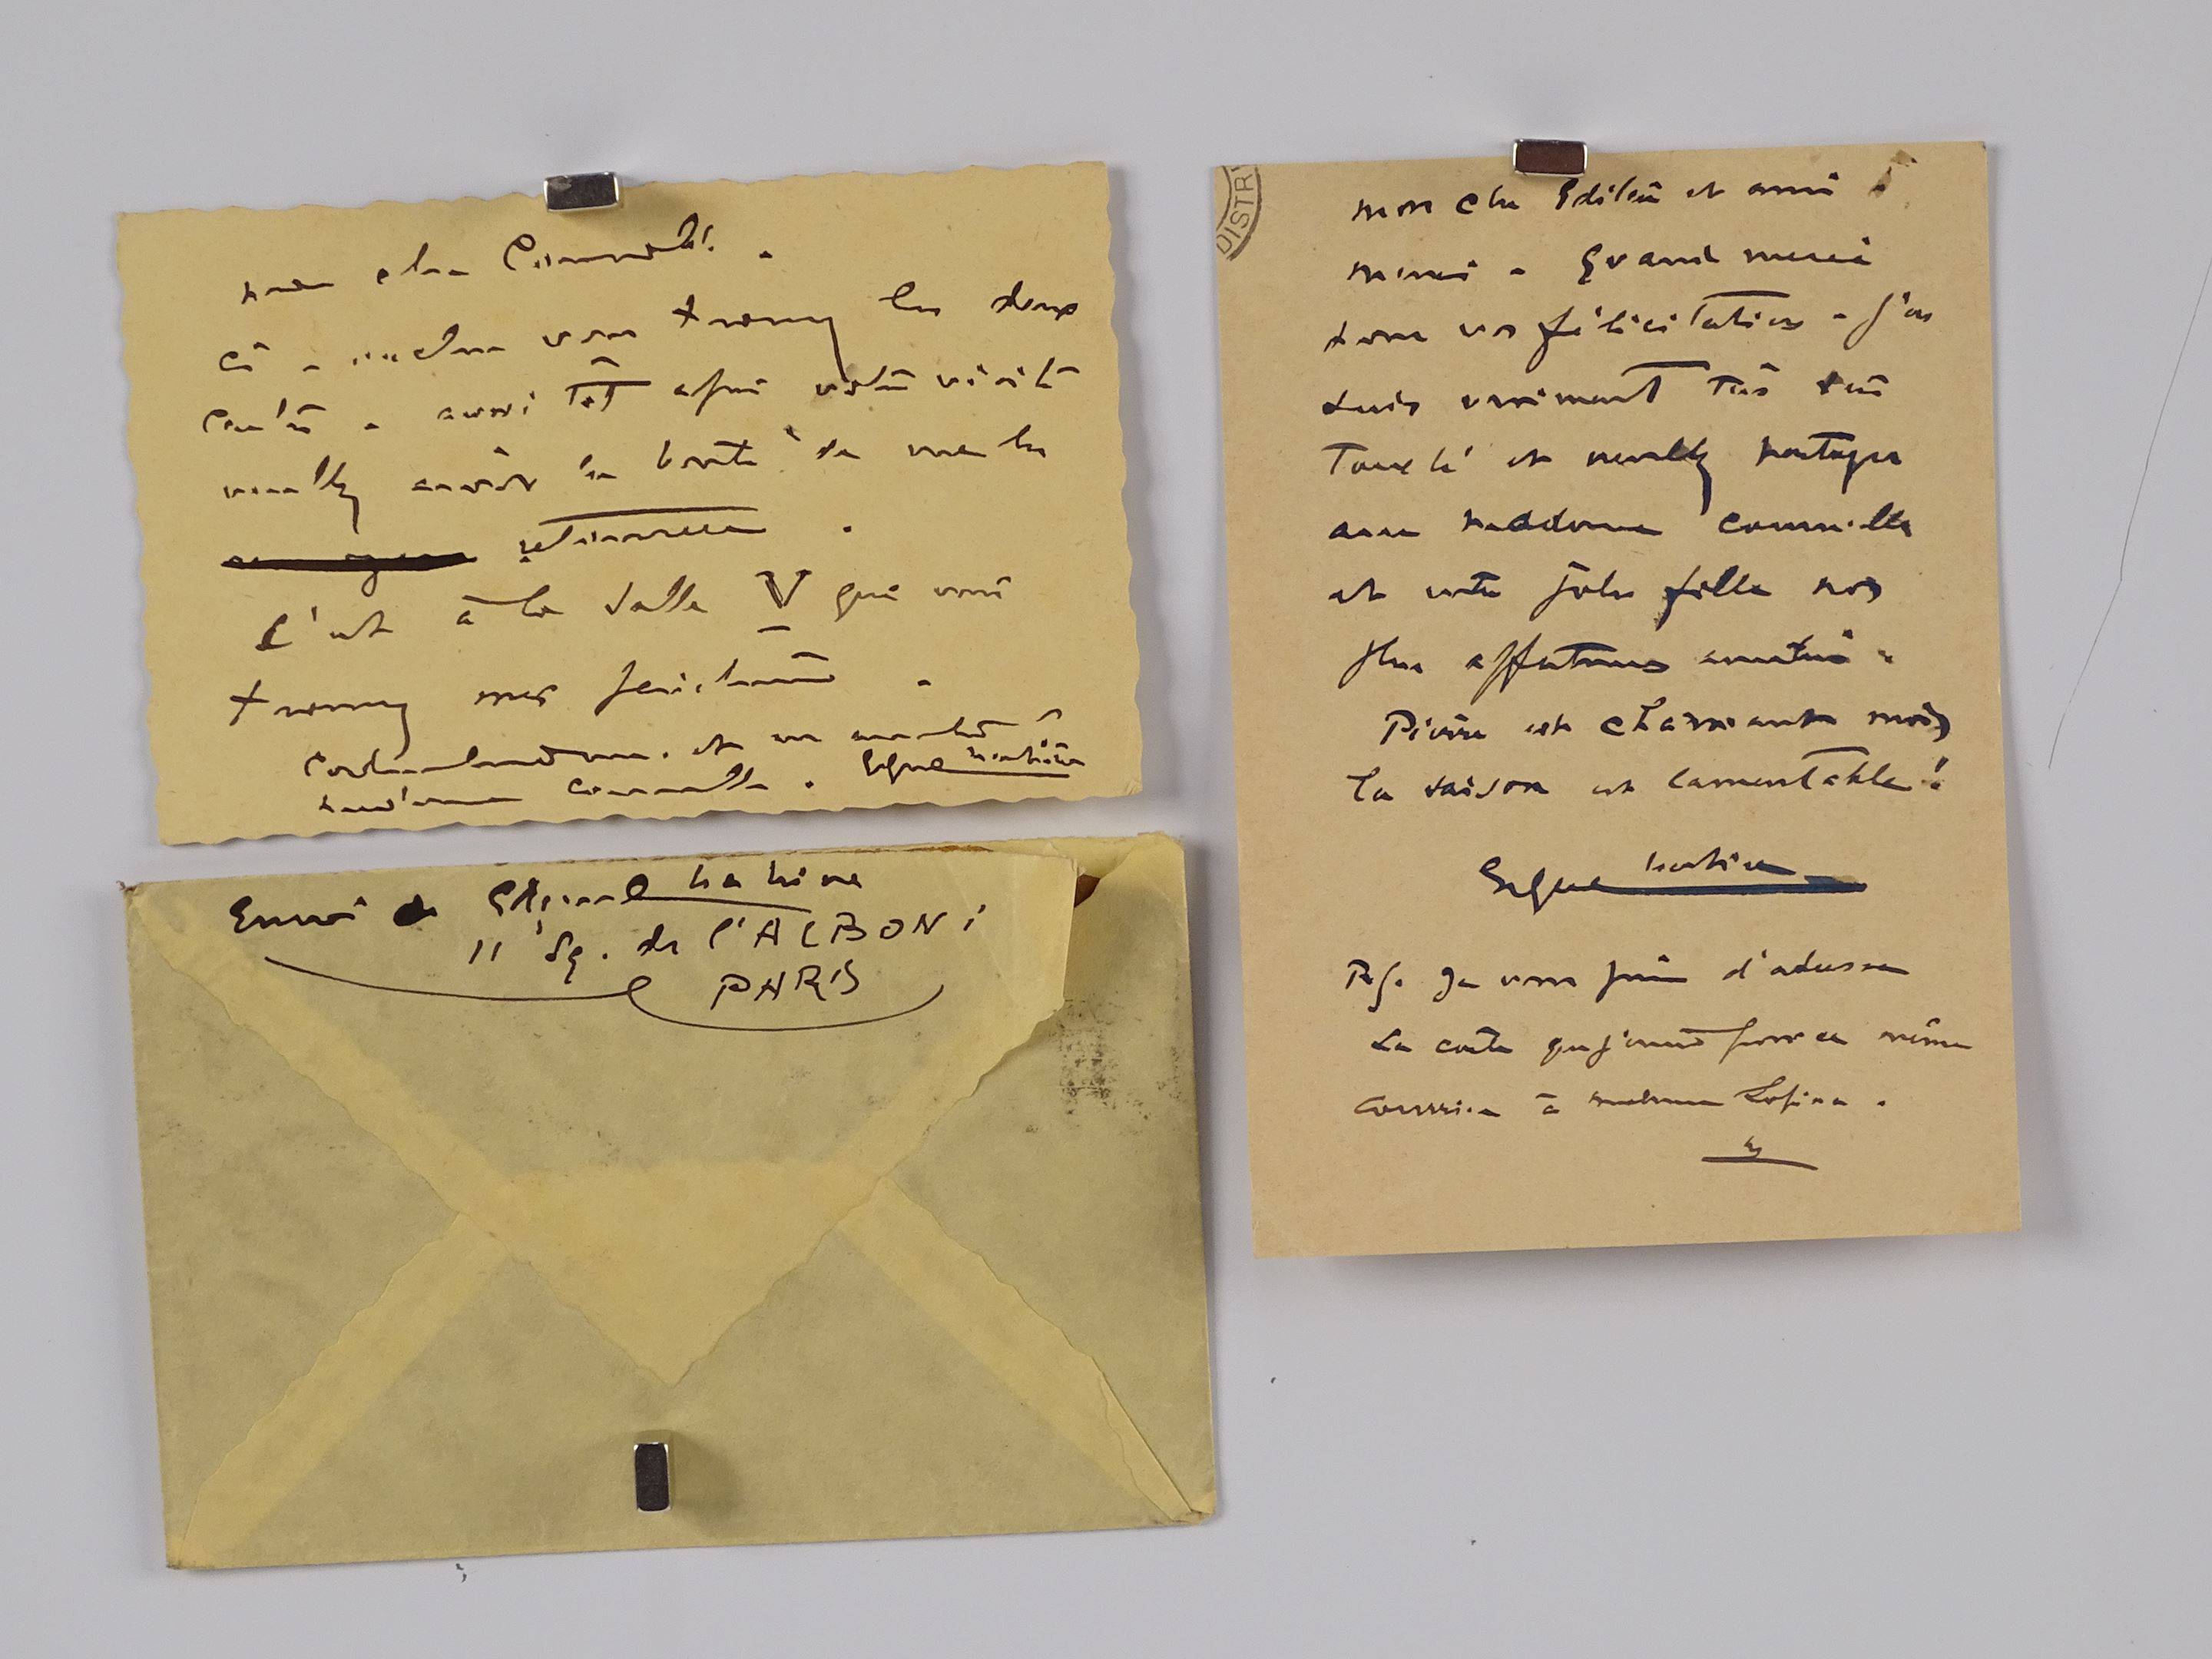 mon cher
Ci - inclus vous trouverez les deux
cartes - aussi tôt après votre visite
veuillez avoir la bonté de me les
retourner.
C'est à la salle V que vous
trouverez mes peintures.
Cordialement. et
madame
Envoi de Edgard
11 Sq. de l'ALBONI
PARIS
DISTR
mon cher Editeur et ami
merci - Grand merci
pour vos félicitations - J'en
suis vraiment très très
touché et veuillez partager
avec madame
et votre jolie fille nos
plus affectueuses amitiés.
Pierre est charmante mais
la saison est lamentable!
P.S. Je vous prie d'adresser
la carte que j'envoie par ce même
courrier à madame